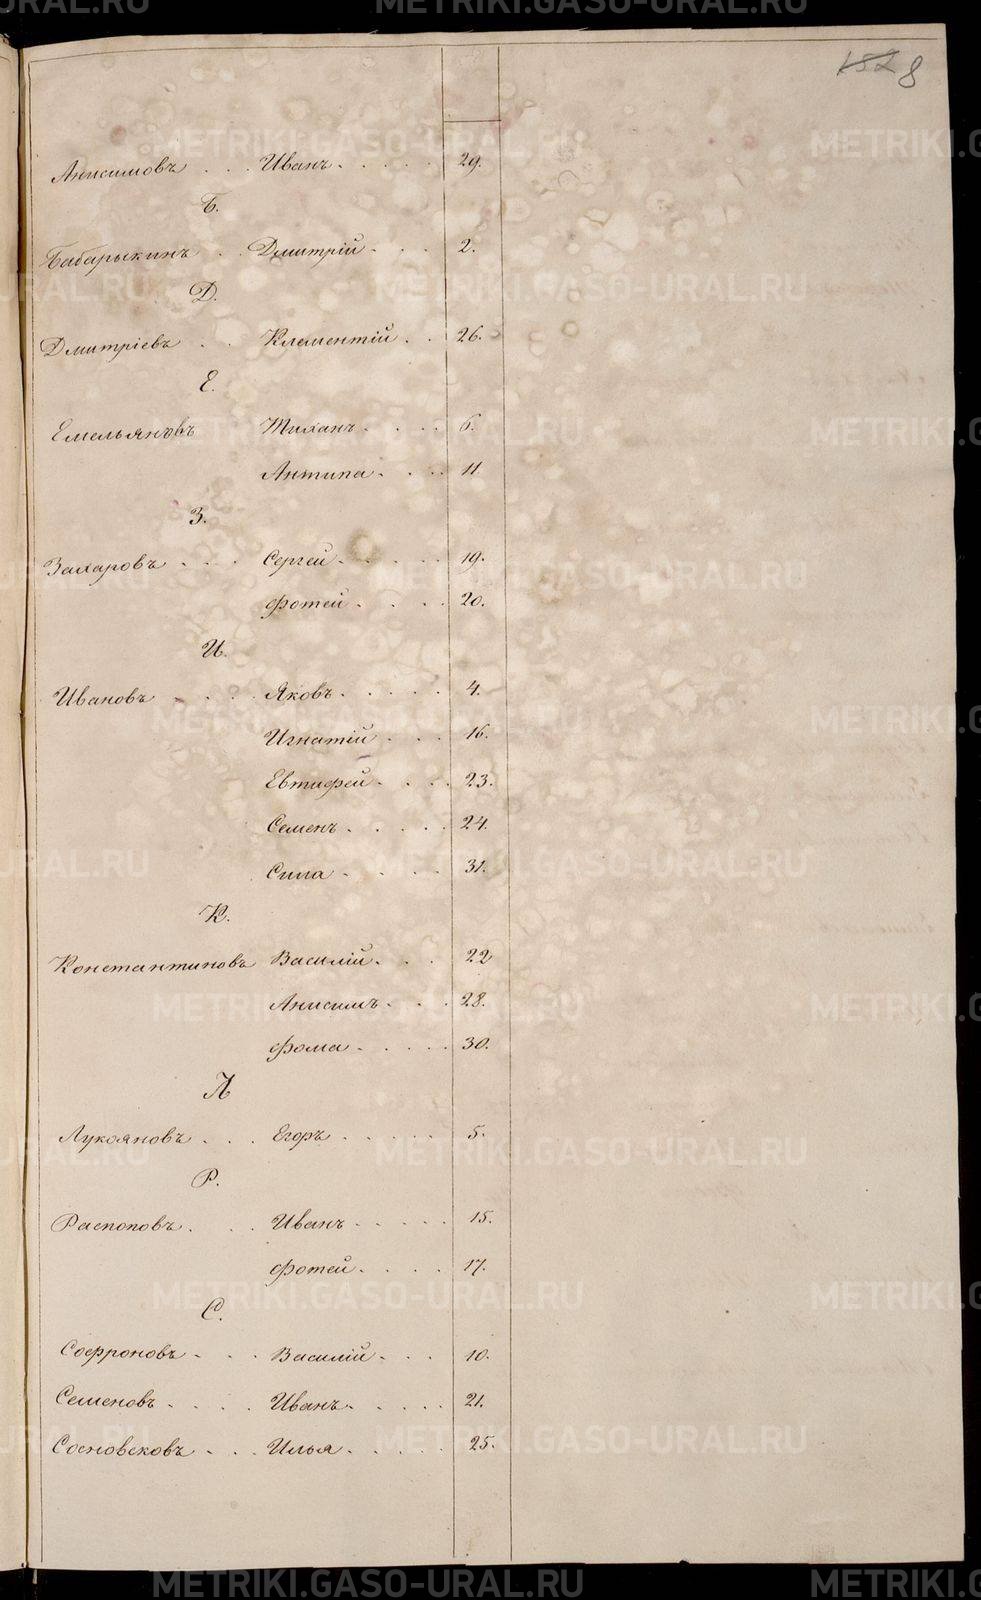 152 8
Анисимовъ . . . Иванъ . . . . . 29.
Б.
Бабарыкинъ . . Дмитрій . . . 2.
Д.
Дмитріевъ . . Климентій . . 26.
Е.
Емельяновъ Тиханъ . . . . 6.
Антипа . . . . 11
З.
Захаровъ . . . Сергей . . . . . 19.
Фотей . . . . 20.
И.
Ивановъ . . . . Яковъ . . . . . 4.
Игнатій . . . 16.
Евтифей . . . . 23.
Семенъ . . . . . 24.
Сила . . . . . 31.
К.
Константиновъ Василій . . . 22
Анисимъ . . . 28.
Фома . . . . . 30.
Л
Лукояновъ . . . Егоръ . . . . . 5.
Р.
Распоповъ . . . Иванъ . . . . . 15.
Фотей . . . . 17.
С.
Софроновъ . . . Василій . . . 10.
Семеновъ . . . . Иванъ . . . . . 21.
Сосновсковъ . . . Илья . . . . . 25.
METRIKI.GASO-URAL.RU